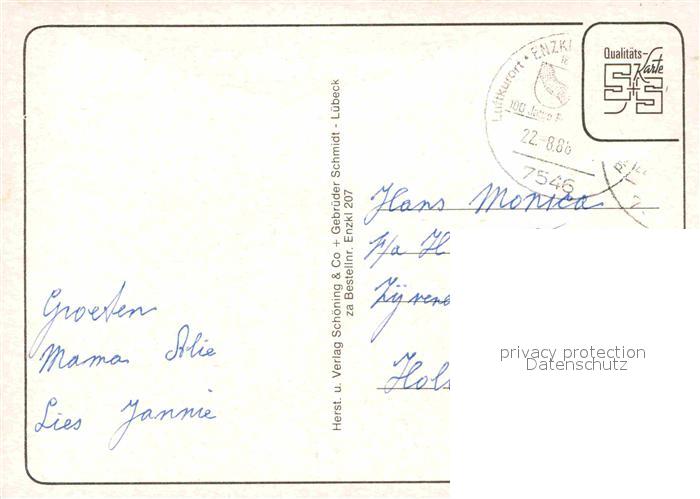 Groeten
Mama Alie
Lies Jannie
Herst. u. Verlag Schöning & Co + Gebrüder Schmidt - Lübeck
za Bestellnr. Enzkl 207
Luftkurort • ENZKL
100 Jahre
22.-8.88
7546
Qualitäts-
Karte
S+S
Hans Monica
F/a H
Zijvene
Hols
privacy protection
Datenschutz